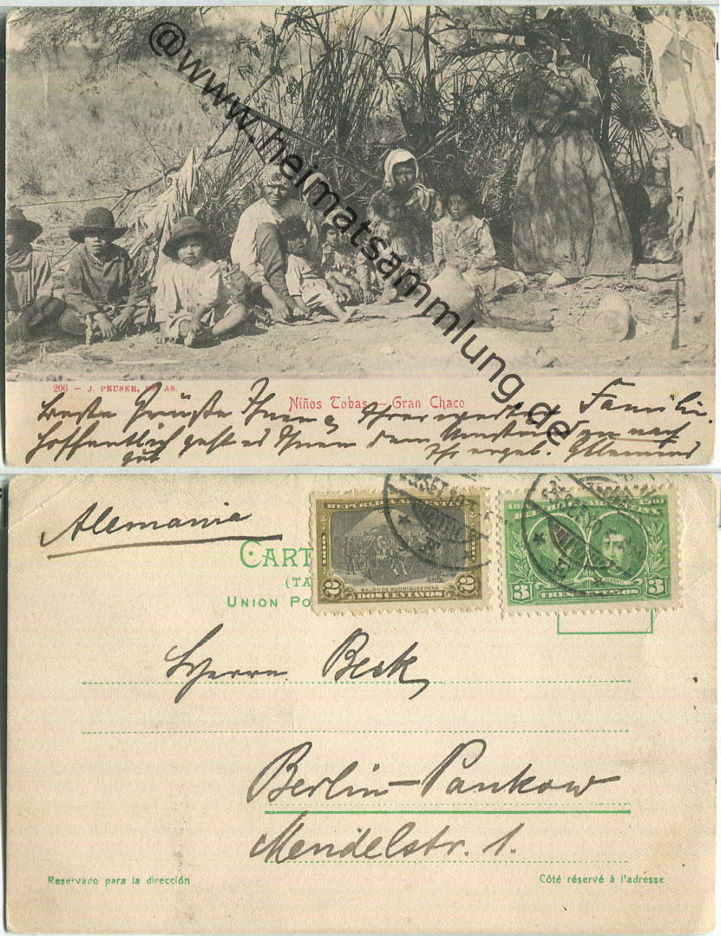 @www.heimatsammlung.de
206 – J. PEUSER, BS. AS.
Niños Tobas – Gran Chaco
Beste Grüße Ihnen & Ihrer werten Familie.
Hoffentlich geht es Ihnen den Umständen nach
gut Ihr ergeb.
Alemania
REPUBLICA ARGENTINA
1810 1910
2 2
DOS CENTAVOS
3 3
TRES CENTAVOS
CART
(TA
UNION PO
Herrn Beck
Berlin-Pankow
Mendelstr. 1.
Reservado para la dirección
Côté réservé à l'adresse